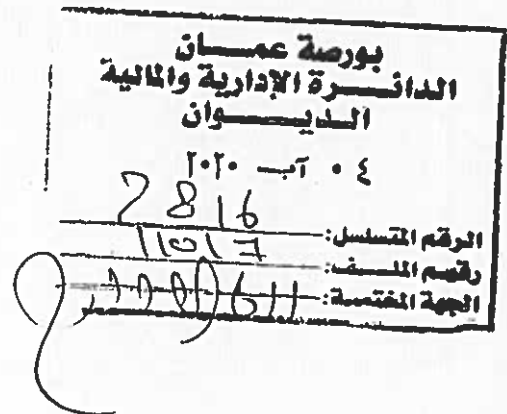 بورصة عمـــان
الدائـــرة الإدارية والمالية
الديـــوان
٠٤ آب ٢٠٢٠
الرقم المتسلسل: 2816
رقم الملف:
الجهة المختصة: